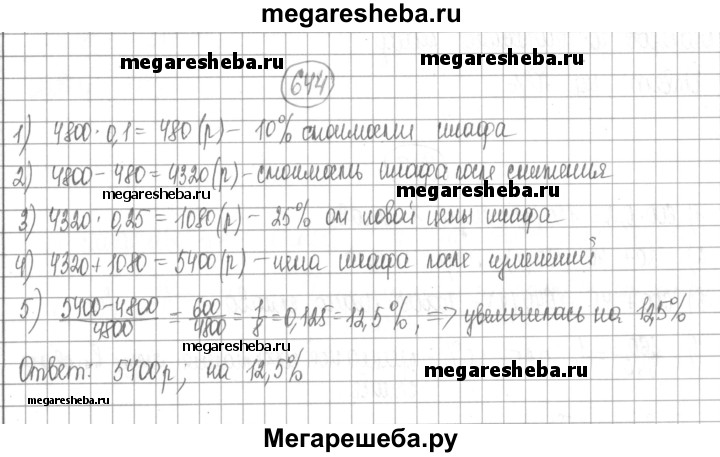 megaresheba.ru
megaresheba.ru
megaresheba.ru
644
1) 4800 · 0,1 = 480 (р) – 10% стоимости шкафа
2) 4800 – 480 = 4320 (р) – стоимость шкафа после снижения
megaresheba.ru
megaresheba.ru
3) 4320 · 0,25 = 1080 (р) – 25% от новой цены шкафа
4) 4320 + 1080 = 5400 (р) – цена шкафа после изменений
5) 5400 – 4800 / 4800 = 600 / 4800 = 1/8 = 0,125 = 12,5%, => увеличилась на 12,5%
megaresheba.ru
Ответ: 5400 р; на 12,5%
megaresheba.ru
megaresheba.ru
Мегарешеба.ру